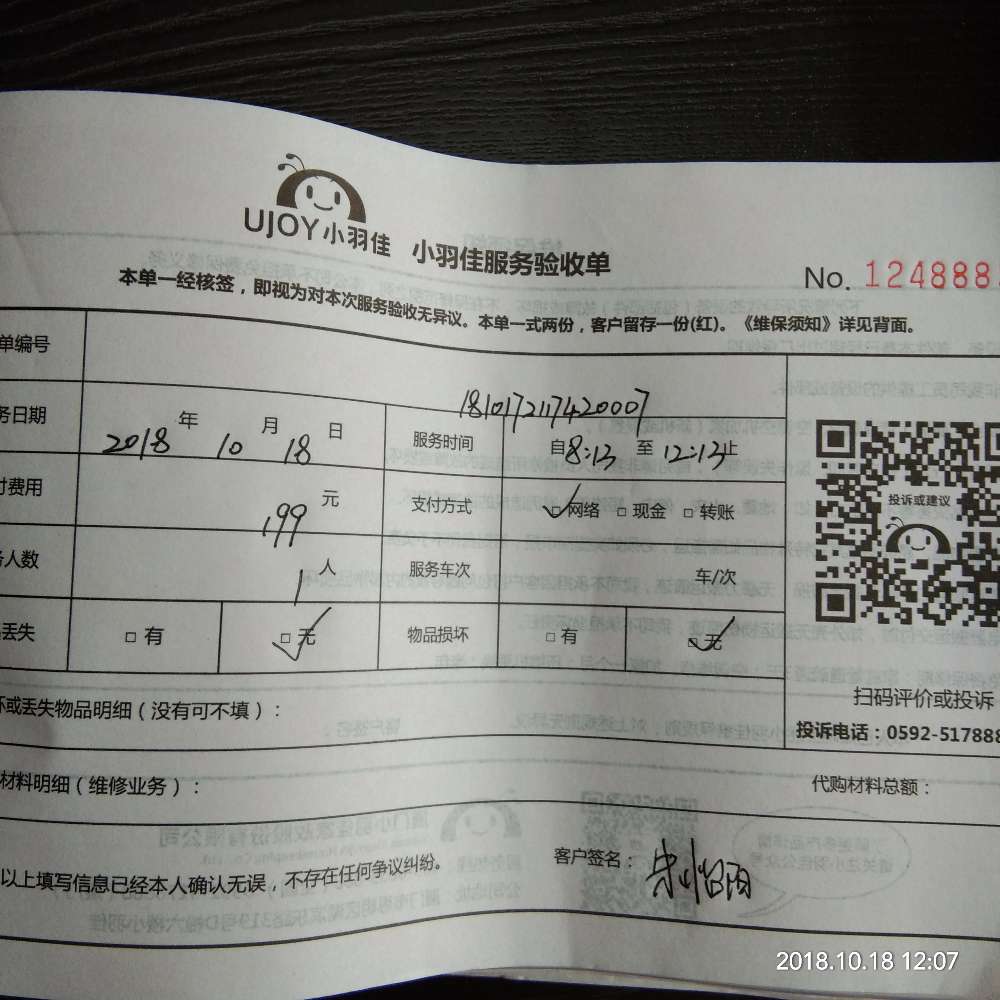 UJOY小羽佳 小羽佳服务验收单
No. 124888
本单一经核签，即视为对本次服务验收无异议。本单一式两份，客户留存一份(红)。《维保须知》详见背面。
单编号 1810172117420007
务日期 2018 年 10 月 18 日 服务时间 自8:13 至 12:13止
付费用 199 元 支付方式 ✓□网络 □现金 □转账
务人数 1 人 服务车次 车/次
丢失 □有 ☑无 物品损坏 □有 ☑无
投诉或建议
扫码评价或投诉
投诉电话：0592-517888
坏或丢失物品明细（没有可不填）：
材料明细（维修业务）： 代购材料总额：
以上填写信息已经本人确认无误，不存在任何争议纠纷。 客户签名：
2018.10.18 12:07